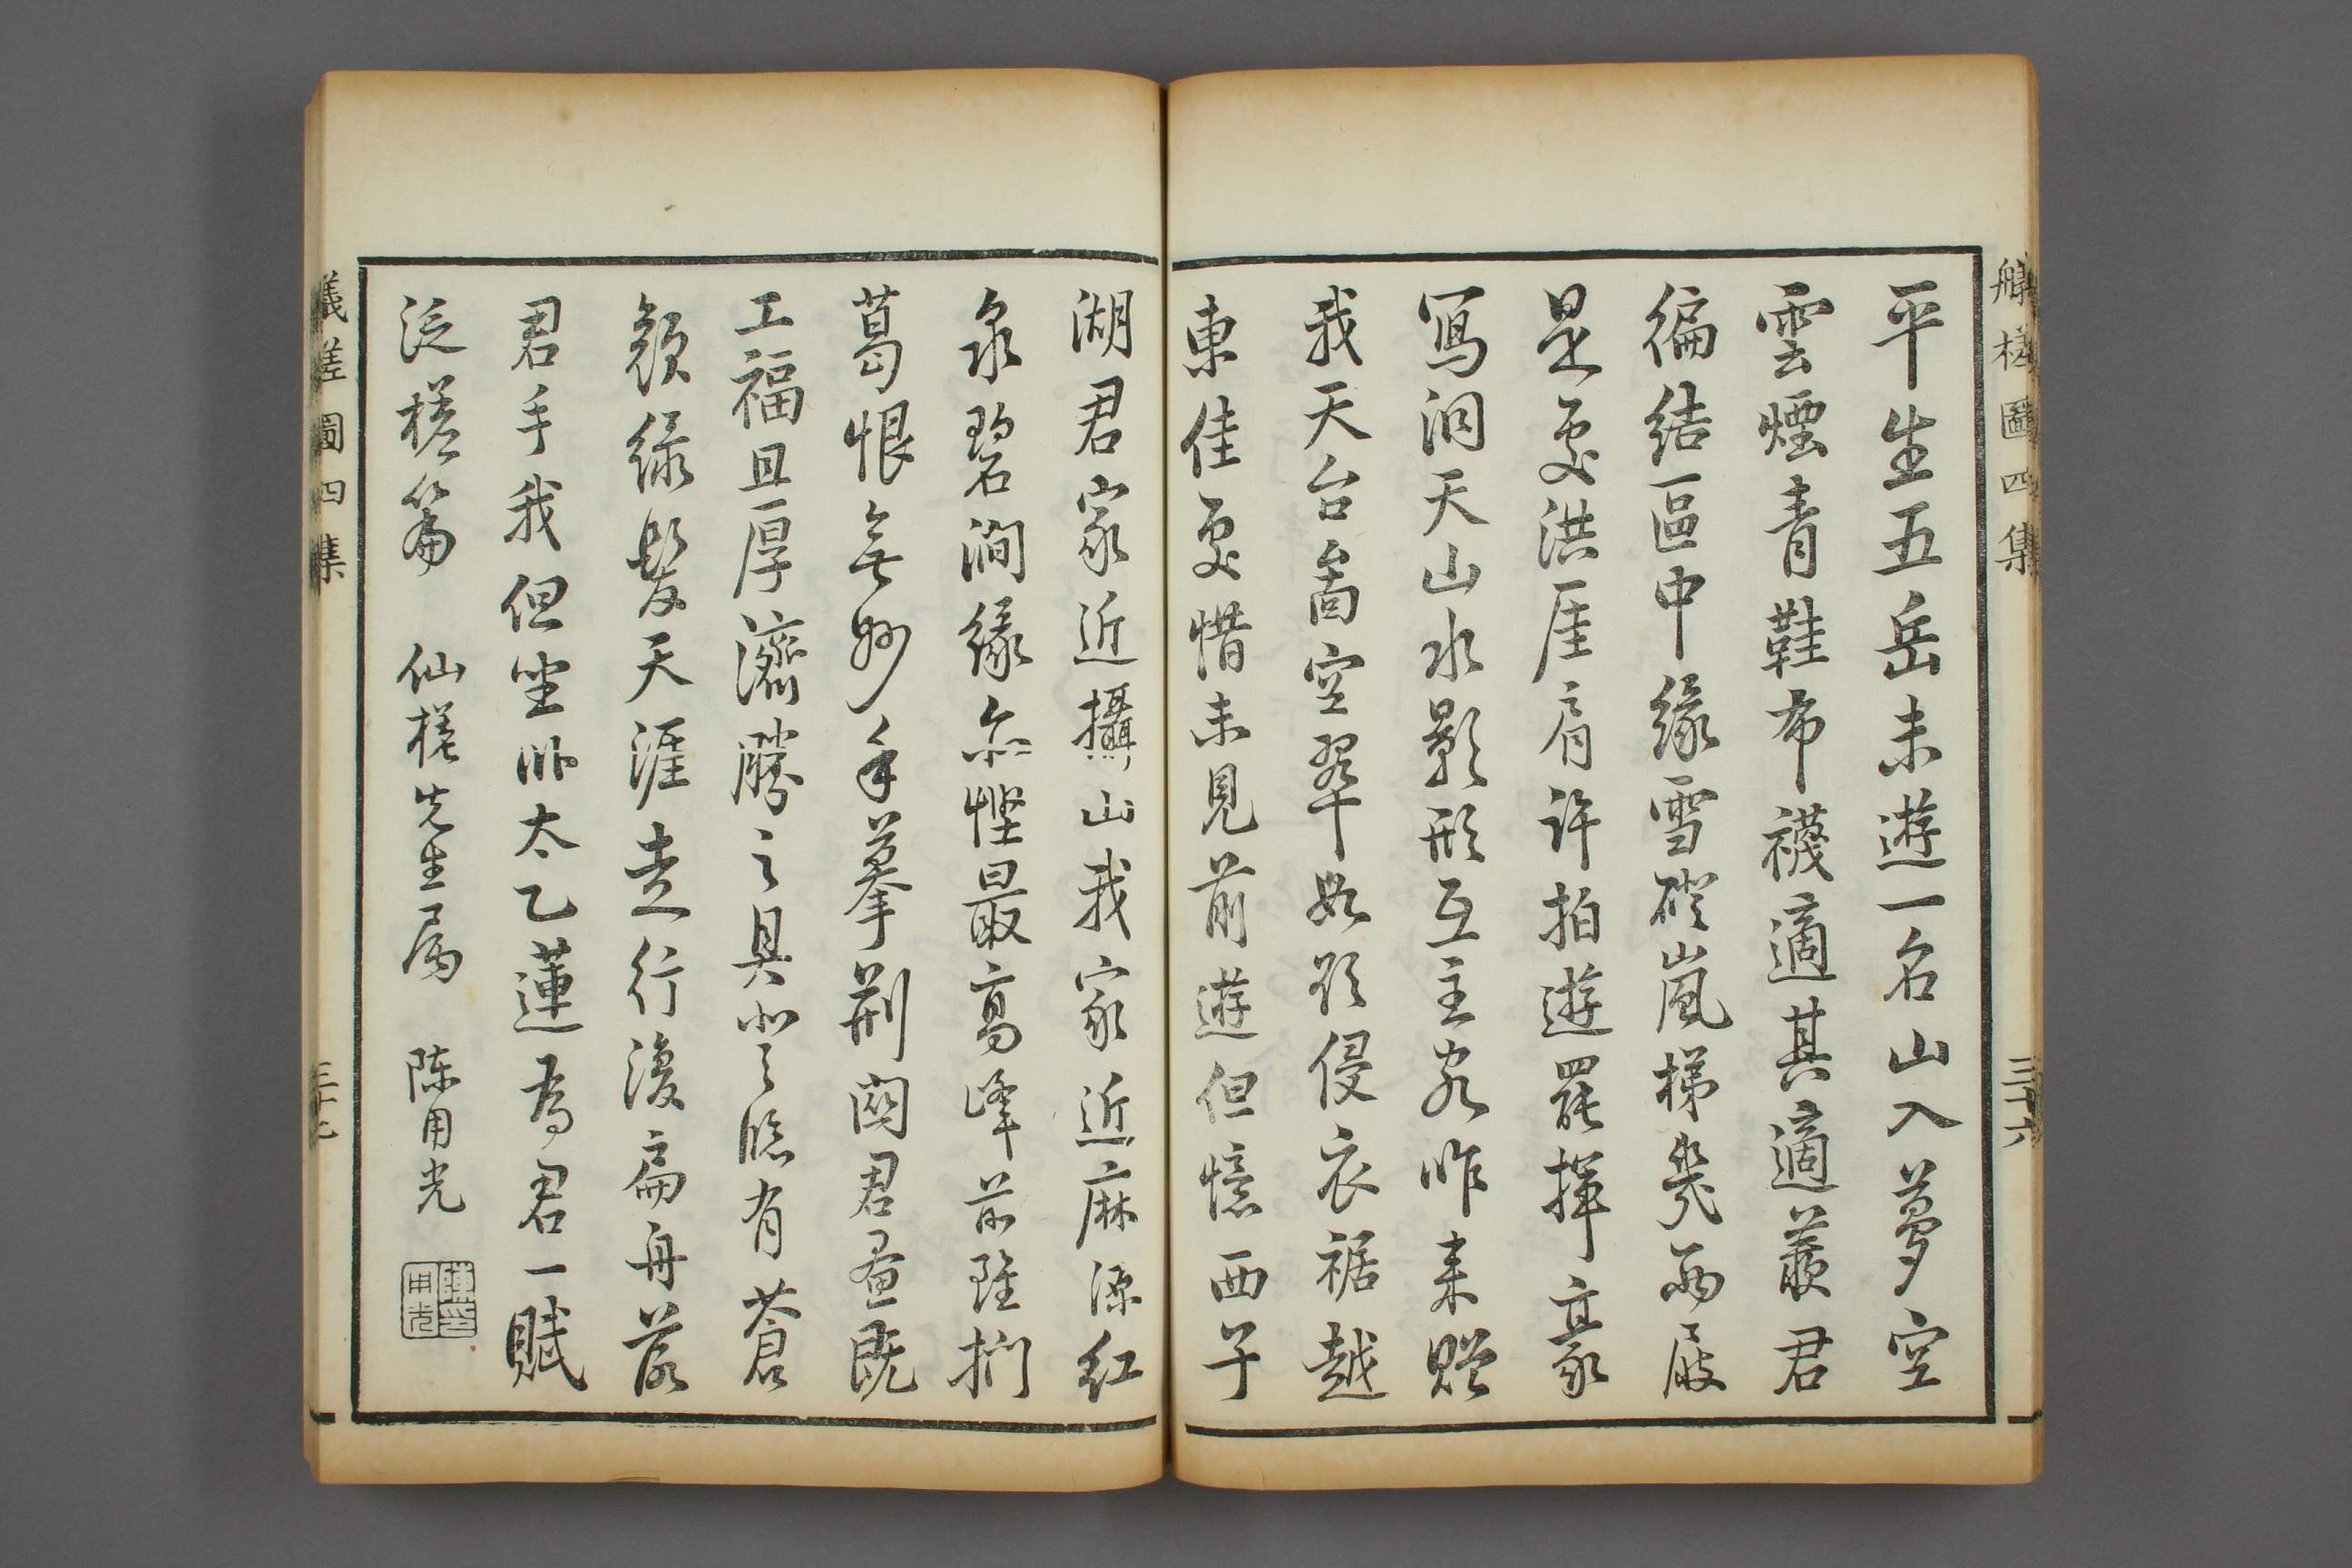 艤槎圖四集
三十六
平生五岳未遊一名山入夢空
雲煙青鞋布襪適其適羨君
徧結區中緣雪磴嵐梯幾兩屐
是處洪厓肩許拍遊罷揮豪
寫洞天山水影形互主客昨來贈
我天台啚空翠如欲侵衣裾越
東佳處惜未見前遊但憶西子
湖君家近攝山我家近麻源紅
泉碧澗緣亦慳最高峰前雖捫
葛恨無妙手摹荊關君畫既
工福且厚濟勝之具有蒼
顏綠髮天涯走行復扁舟落
君手我但坐臥太乙蓮為君一賦
泛槎篇 仙槎先生屬 陳用光
陳印用光
艤槎圖四集
三十七